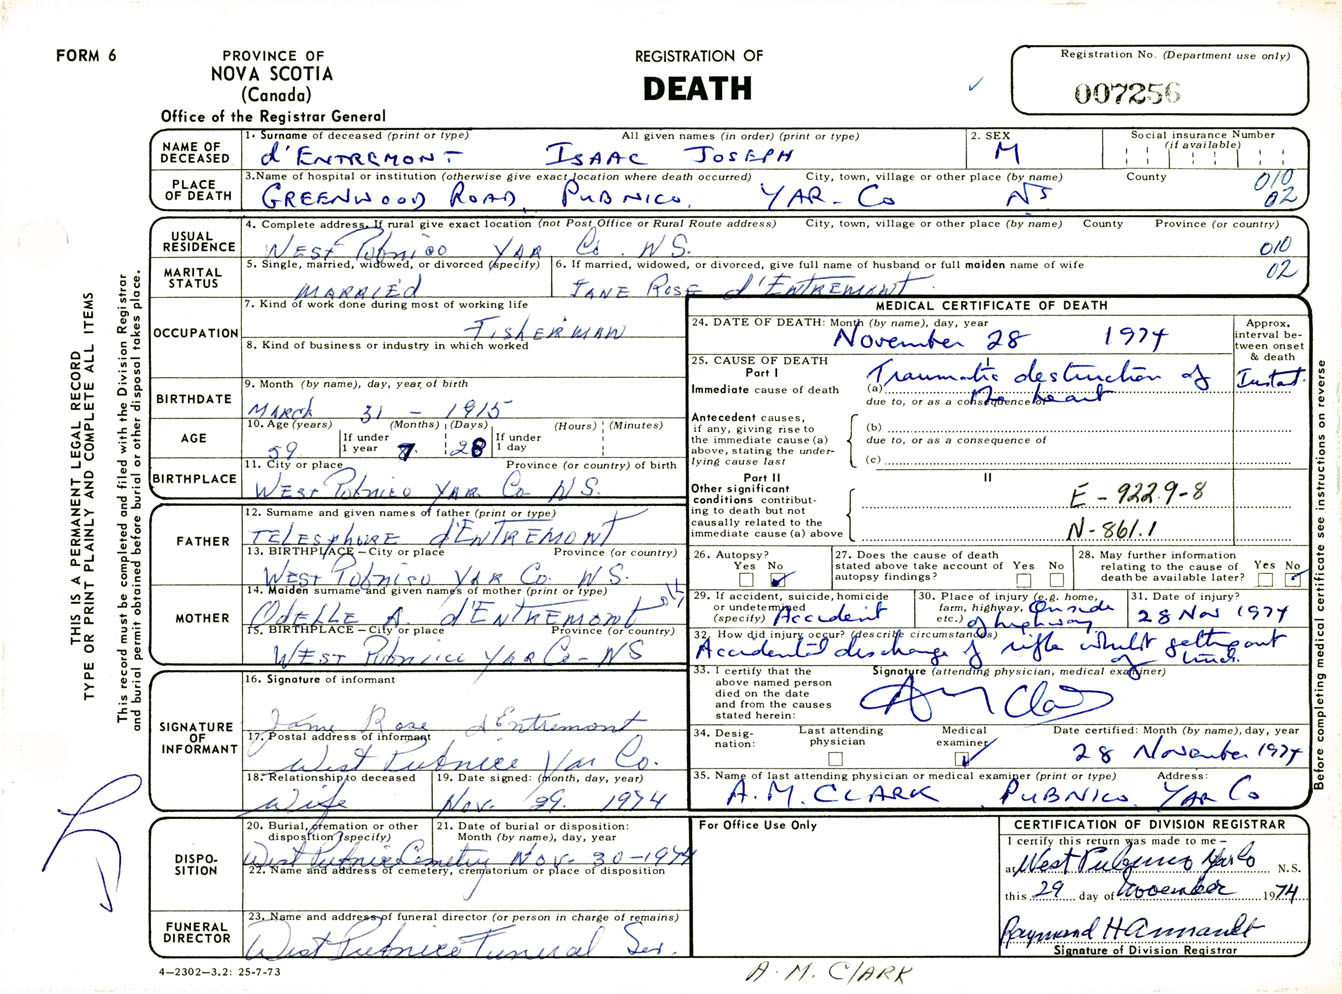 FORM 6
PROVINCE OF
NOVA SCOTIA
(Canada)
Office of the Registrar General
REGISTRATION OF
DEATH
Registration No. (Department use only)
007256
NAME OF DECEASED
1. Surname of deceased (print or type) All given names (in order) (print or type)
d'ENTREMONT ISAAC JOSEPH
2. SEX
M
Social insurance Number
(if available)
PLACE OF DEATH
3. Name of hospital or institution (otherwise give exact location where death occurred) City, town, village or other place (by name) County
GREENWOOD ROAD, PUBNICO, YAR-CO NS
010
02
USUAL RESIDENCE
4. Complete address. If rural give exact location (not Post Office or Rural Route address) City, town, village or other place (by name) County Province (or country)
WEST Pubnico YAR Co. N.S.
010
02
MARITAL STATUS
5. Single, married, widowed, or divorced (specify)
MARRIED
6. If married, widowed, or divorced, give full name of husband or full maiden name of wife
JANE ROSE d'ENTREMONT
OCCUPATION
7. Kind of work done during most of working life
FISHERMAN
8. Kind of business or industry in which worked
BIRTHDATE
9. Month (by name), day, year of birth
MARCH 31 - 1915
AGE
10. Age (years) (Months) (Days) (Hours) (Minutes)
59 If under 1 year 7 28 If under 1 day
BIRTHPLACE
11. City or place Province (or country) of birth
WEST Pubnico YAR. Co N.S.
FATHER
12. Surname and given names of father (print or type)
TELESPHORE d'ENTREMONT
13. BIRTHPLACE – City or place Province (or country)
WEST Pubnico YAR Co. N.S.
MOTHER
14. Maiden surname and given names of mother (print or type)
ODELLE A. d'ENTREMONT
15. BIRTHPLACE – City or place Province (or country)
WEST Pubnico YAR Co- NS
SIGNATURE OF INFORMANT
16. Signature of informant
Jane Rose d'Entremont
17. Postal address of informant
West Pubnico Yar Co.
18. Relationship to deceased
Wife
19. Date signed: (month, day, year)
Nov. 29. 1974
DISPO-SITION
20. Burial, cremation or other disposition (specify)
West Pubnico Cemetry
21. Date of burial or disposition: Month (by name), day, year
Nov. 30-1974
22. Name and address of cemetery, crematorium or place of disposition
FUNERAL DIRECTOR
23. Name and address of funeral director (or person in charge of remains)
West Pubnico Funeral Ser.
4–2302–3.2: 25-7-73
MEDICAL CERTIFICATE OF DEATH
24. DATE OF DEATH: Month (by name), day, year
November 28 1974
Approx. interval between onset & death
25. CAUSE OF DEATH
Part I
I
Immediate cause of death
(a) Traumatic destruction of
the heart
Instant.
due to, or as a consequence of
Antecedent causes, if any, giving rise to the immediate cause (a) above, stating the underlying cause last
(b)
due to, or as a consequence of
(c)
Part II
II
Other significant conditions contributing to death but not causally related to the immediate cause (a) above
E-922.9-8
N-861.1
26. Autopsy?
Yes No
27. Does the cause of death stated above take account of autopsy findings?
Yes No
28. May further information relating to the cause of death be available later?
Yes No
29. If accident, suicide, homicide or undetermined (specify)
Accident
30. Place of injury (e.g. home, farm, highway, etc.)
of highway
31. Date of injury?
28 Nov 1974
32. How did injury occur? (describe circumstances)
Accidental discharge of rifle whilst getting out
of
33. I certify that the above named person died on the date and from the causes stated herein:
Signature (attending physician, medical examiner)
A M Clark
34. Designation:
Last attending physician
Medical examiner
Date certified: Month (by name), day, year
28 November 1974
35. Name of last attending physician or medical examiner (print or type) Address:
A.M. CLARK PUBNICO, YAR CO
For Office Use Only
CERTIFICATION OF DIVISION REGISTRAR
I certify this return was made to me –
at West Pubnico Yar Co N.S.
this 29 day of November 1974
Raymond H
Signature of Division Registrar
A. M. CLARK
THIS IS A PERMANENT LEGAL RECORD
TYPE OR PRINT PLAINLY AND COMPLETE ALL ITEMS
This record must be completed and filed with the Division Registrar
and burial permit obtained before burial or other disposal takes place.
Before completing medical certificate see instructions on reverse